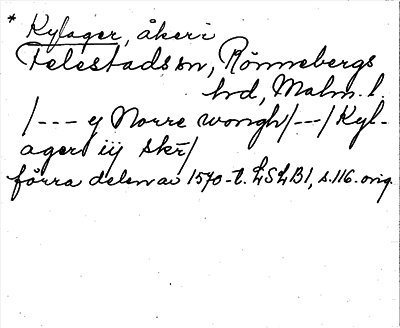 * Kylager, åker i
Felestads sn, Rönnebergs
hd, Malm. l.
/--- y Norre wongh/--/Kyl-
ager iij skr/
förra delen av 1570-t. LSLB1, s.116. orig.